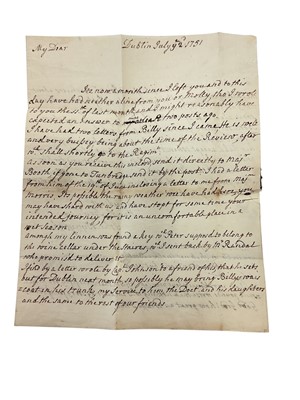 Dublin July 9th 1751
My Dear
Its now a month since I left you and to this
day have had neither a line from you or Molly, tho I wrote
to you the 25th of last month and might reasonably have
expected an answer to it two posts ago.
I have had two letters from Billy since I came He is well
and very busy being about the time of the Review, after
wch shall shortly go to the Regimt
as soon as you receive this send it directly to Maj
Booth if gone to Tunbridge send it by the post I had a letter
from him of the 19th of June inclosing a letter to me from Mr
Morris. Its possible the rainy weather we have had here, you
may have shard with us and have stopt for some time your
intended journey, for it is an uncomfortable place in a
wet season
among my linnen was found a key wch Peter supposed to belong
to the wine cellar under the stairs, wch I sent back by Mr Randal
who promised to deliver it.
I find by a letter wrote by Capt Johnson to a friend of his that he sets
out for Dublin next month so possibly he may bring Billys
coat in his trunk, my Service to him the Doctr and his daughters
and the same to the rest of our friends